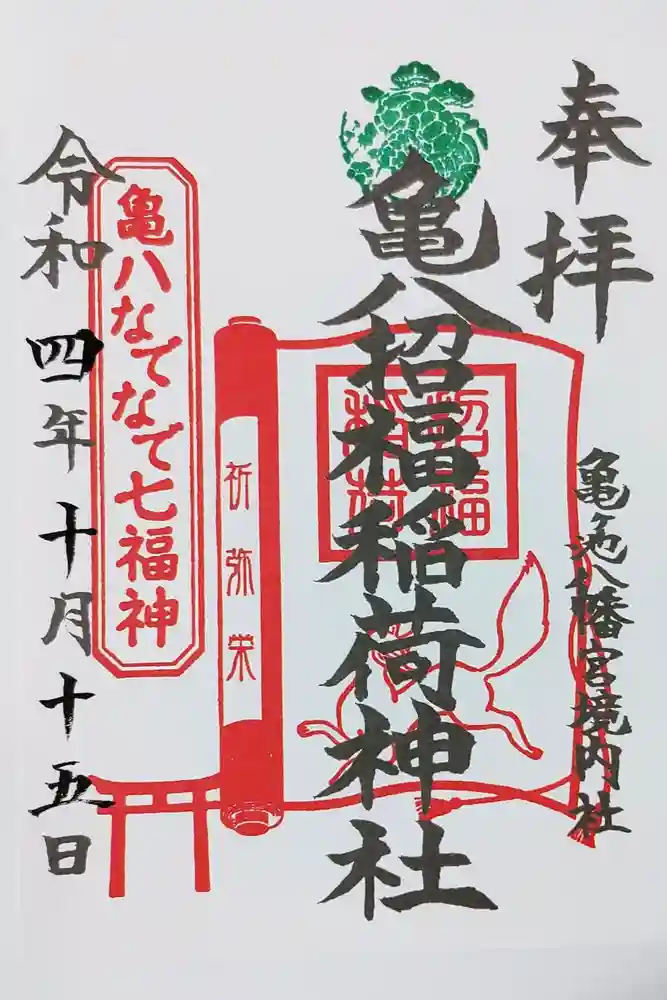 奉拝
亀ヶ池八幡宮境内社
亀八招福稲荷神社
招福
稲荷
祈弥栄
亀八なでなで七福神
令和四年十月十五日